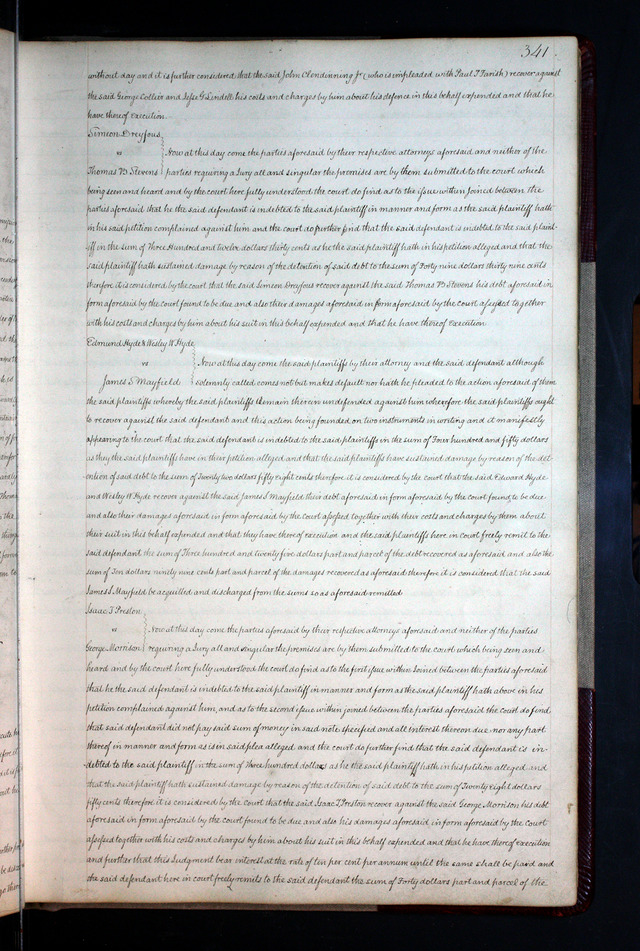 341
without day and it is further considered that the said John Clendinning Jr (who is impleaded with Paul T Farish) recover against
the said George Collier and Jesse G Lindell his costs and charges by him about his defence in this behalf expended and that he
have thereof execution
Simeon Dreyfous
vs } Now at this day come the parties aforesaid by their respective attorneys aforesaid and neither of the
Thomas B Stevens } parties requiring a Jury all and singular the premises are by them submitted to the court which
being seen and heard and by the court here fully understood the court do find as to the issue within Joined between the
parties aforesaid that he the said defendant is indebted to the said plaintiff in manner and form as the said plaintiff hath
in his said petition complained against him and the court do further find that the said defendant is indebted to the said plaint-
iff in the sum of Three Hundred and twelve dollars thirty cents as he the said plaintiff hath in his petition alleged and that the
said plaintiff hath sustained damage by reason of the detention of said debt to the sum of Forty nine dollars thirty nine cents
therefore it is considered by the court that the said Simeon Dreyfous recover against the said Thomas B Stevens his debt aforesaid in
form aforesaid by the court found to be due and also their damages aforesaid in form aforesaid by the court assessed together
with his costs and charges by him about his suit in this behalf expended and that he have thereof execution
Edmund Hyde & Wesley W Hyde
vs } Now at this day come the said plaintiffs by their attorney and the said defendant although
James S Mayfield } solemnly called comes not but makes default nor hath he pleaded to the action aforesaid of them
the said plaintiffs whereby the said plaintiffs remain therein undefended against him wherefore the said plaintiffs ought
to recover against the said defendant and this action being founded on two instruments in writing and it manifestly
appearing to the court that the said defendant is indebted to the said plaintiffs in the sum of Four hundred and fifty dollars
as they the said plaintiffs have in their petition alleged and that the said plaintiffs have sustained damage by reason of the det-
ention of said debt to the sum of Twenty two dollars fifty eight cents therefore it is considered by the court that the said Edward Hyde
and Wesley W Hyde recover against the said James S Mayfield their debt aforesaid in form aforesaid by the court found to be due
and also their damages aforesaid in form aforesaid by the court assessed together with their costs and charges by them about
their suit in this behalf expended and that they have thereof execution and the said plaintiffs here in court freely remit to the
said defendant the sum of Three hundred and twenty five dollars part and parcel of the debt recovered as aforesaid and also the
sum of Ten dollars ninety nine cents part and parcel of the damages recovered as aforesaid therefore it is considered that the said
James S Mayfield be acquitted and discharged from the sums so as aforesaid remitted
Isaac T Preston
vs } Now at this day come the parties aforesaid by their respective attorneys aforesaid and neither of the parties
George Morrison } requiring a Jury all and singular the premises are by them submitted to the court which being seen and
heard and by the court here fully understood the court do find as to the first issue within Joined between the parties aforesaid
that he the said defendant is indebted to the said plaintiff in manner and form as the said plaintiff hath above in his
petition complained against him, and as to the second issue within joined between the parties aforesaid the court do find
that said defendant did not pay said sum of money in said note specified and all interest thereon due nor any part
thereof in manner and form as is in said plea alleged and the court do further find that the said defendant is in-
debted to the said plaintiff in the sum of Three hundred dollars as he the said plaintiff hath in his petition alleged and
that the said plaintiff hath sustained damage by reason of the detention of said debt to the sum of Twenty eight dollars
fifty cents therefore it is considered by the court that the said Isaac T Preston recover against the said George Morrison his debt
aforesaid in form aforesaid by the court found to be due and also his damages aforesaid in form aforesaid by the court
assessed together with his costs and charges by him about his suit in this behalf expended and that he have thereof execution
and further that this Judgment bear interest at the rate of ten per cent per annum until the same shall be paid and
the said defendant here in court freely remits to the said defendant the sum of Forty dollars part and parcel of the